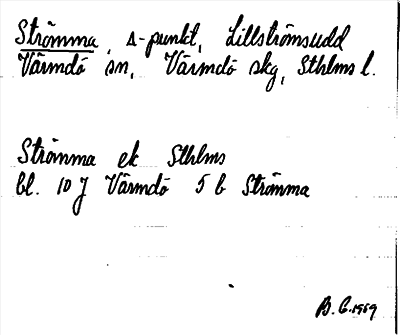 Strömma, s-punkt, Lillströmsudd
Värmdö sn, Värmdö skg, Sthlms l.
Strömma ek Sthlms
bl. 10 J Värmdö 5 b Strömma
B. G. 1969